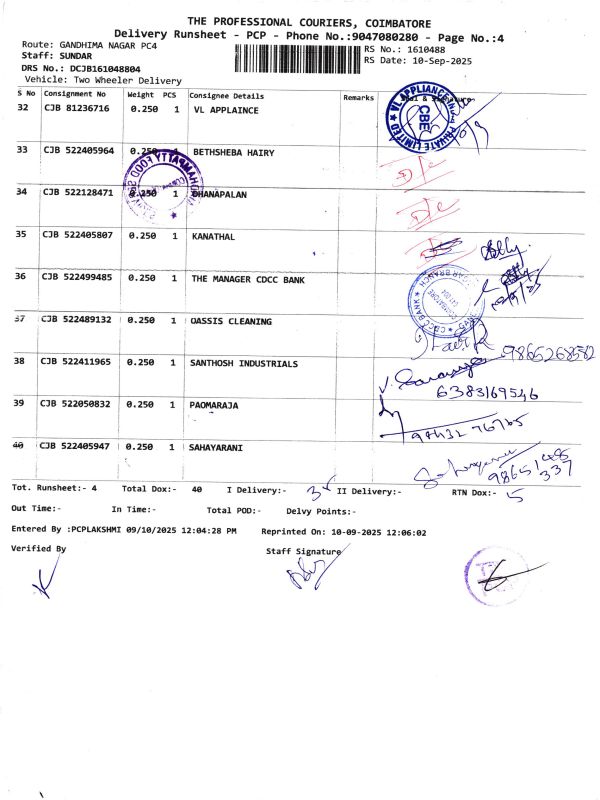 THE PROFESSIONAL COURIERS, COIMBATORE
Delivery Runsheet - PCP - Phone No.:9047080280 - Page No.:4
Route: GANDHIMA NAGAR PC4
Staff: SUNDAR
DRS No.: DCJB161048804
Vehicle: Two Wheeler Delivery
RS No.: 1610488
RS Date: 10-Sep-2025
S No Consignment No Weight PCS Consignee Details Remarks Seal & Signature
32 CJB 81236716 0.250 1 VL APPLAINCE
VL APPLIANCE PRIVATE LIMITED CBE
33 CJB 522405964 0.250 1 BETHSHEBA HAIRY
D/c
34 CJB 522128471 0.250 1 DHANAPALAN
D/c
35 CJB 522405807 1 0.250 KANATHAL
36 CJB 522499485 0.250 1 THE MANAGER CDCC BANK
CDCC BANK
37 CJB 522489132 0.250 1 OASSIS CLEANING
38 CJB 522411965 0.250 1 SANTHOSH INDUSTRIALS
9865268582
6383169546
39 CJB 522050832 0.250 1 PAOMARAJA
98432 76785
40 CJB 522405947 0.250 1 SAHAYARANI
98651 48
337
Tot. Runsheet:- 4 Total Dox:- 40 I Delivery:- 35 II Delivery:- RTN Dox:- 5
Out Time:- In Time:- Total POD:- Delvy Points:-
Entered By :PCPLAKSHMI 09/10/2025 12:04:28 PM Reprinted On: 10-09-2025 12:06:02
Verified By Staff Signature